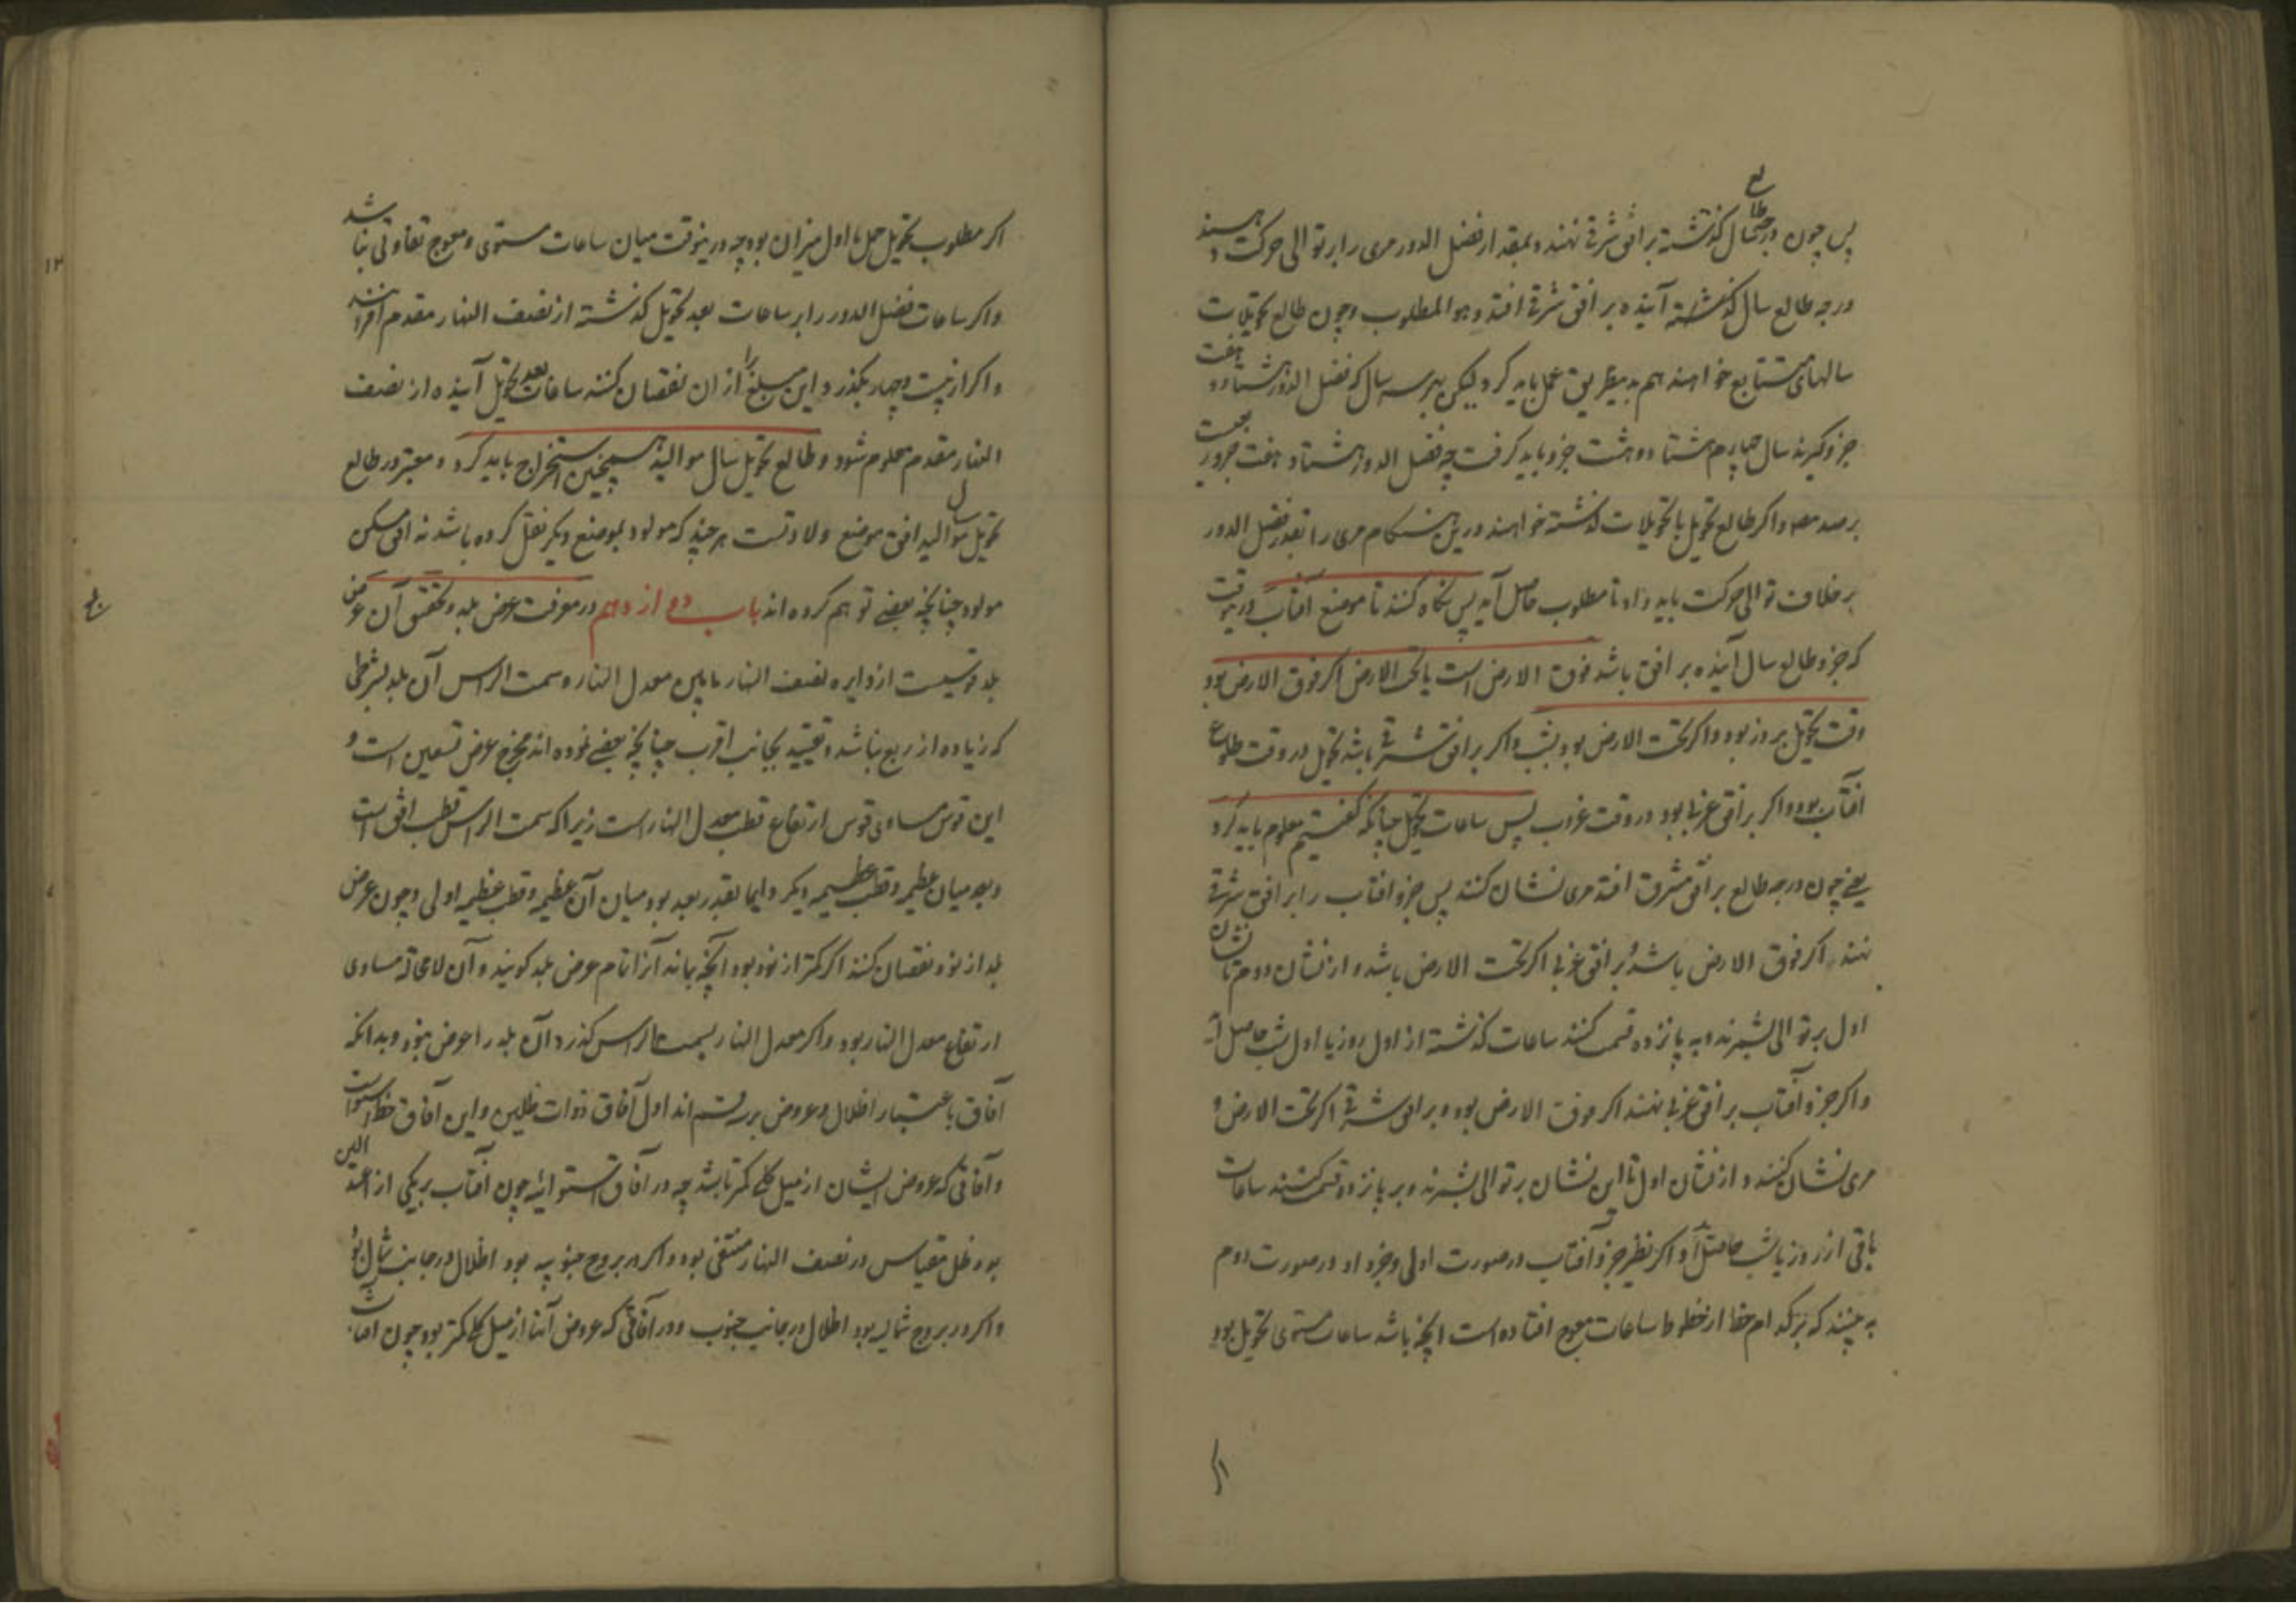 پس چون درجه طالع سال گذشته بر افق شرقی نهند و بمقدار فضل الدور مری را بر توالی حرکت دهند
درجه طالع سال آینده بر افق شرقی افتد و هو المطلوب و چون طالع تحویلات
سالهای متتابع خواهند هم بدین طریق عمل باید کرد لیکن بهر سه سال که فضل الدور هشتاد و هفت
جزو گیرند سال چهارم هشتاد و هشت جزو باید گرفت چه فضل الدور هشتاد و هفت جزو
برصد و اگر طالع تحویل یا تحویلات گذشته خواهند درین هنگام مری را بقدر فضل الدور
بر خلاف توالی حرکت باید داد تا مطلوب حاصل آید پس نگاه کنند تا موضع آفتاب درینوقت
که جزو طالع سال آینده بر افق باشد فوق الارض است یا تحت الارض اگر فوق الارض بود
وقت تحویل بروز بود و اگر تحت الارض بود بشب و اگر بر افق شرقی باشد تحویل در وقت طلوع
آفتاب بود و اگر بر افق غربی بود در وقت غروب پس ساعات تحویل چنانکه گفتیم معلوم باید کرد
یعنی چون درجه طالع بر افق مشرق افتد مری نشان کنند پس جزو افتاب را بر افق شرقی
نهند اگر فوق الارض باشد و بر افق غربی اگر تحت الارض باشد و از نشان دوم تا نشان
اول بر توالی بشمرند و به پانزده قسمت کنند ساعات گذشته از اول روز یا اول شب حاصل آید
و اگر جزو آفتاب بر افق غربی نهند اگر فوق الارض بود و بر افق شرقی اگر تحت الارض و
مری نشان کنند و از نشان اول تا این نشان بر توالی بشمرند و بر پانزده قسمت کنند ساعات
باقی از روز یا شب حاصل آید و اگر نظیر جزو آفتاب در صورت اولی و جزو او در صورت دوم
به بینند که بر کدام خط از خطوط ساعات معوج افتاده است انچه باشد ساعات مستوی تحویل بود
اگر
اگر مطلوب تحویل حمل یا اول میزان بود چه درینوقت میان ساعات مستوی و معوج تفاوتی نباشد
و اگر ساعات فضل الدور را بر ساعات بعد تحویل گذشته از نصف النهار مقدم افزایند
و اگر از بیست و چهار بگذرد این مبلغ را از ان نقصان کنند ساعات بعد تحویل آینده از نصف
النهار مقدم معلوم شود و طالع تحویل سال موالید همچنین استخراج باید کرد و معتبر در طالع
تحویل سال موالید افق موضع ولادتست هر چند که مولود بموضع دیگر نقل کرده باشد نه افق مسکن
مولود چنانچه بعضی توهم کرده اند باب دوازدهم در معرفت عرض بلد و تحقیق آن عرض
بلد قوسیست از دایره نصف النهار مابین معدل النهار و سمت الراس آن بلد بشرطی
که زیاده از ربع نباشد و تقیید بجانب اقرب چنانچه بعضی نموده اند مخرج عرض تسعین است و
این قوس مساوی قوس ارتفاع قطب معدل النهار است زیرا که سمت الراس قطب افق است
و بعد میان عظیمه و قطب عظیمه دیگر دایما بقدر بعد بود میان آن عظیمه و قطب عظیمه اولی و چون عرض
بلد از نود نقصان کنند اگر کمتر از نود بود آنچه بماند آنرا تمام عرض بلد گویند و آن لامحاله مساوی
ارتفاع معدل النهار بود و اگر معدل النهار بسمت الراس گذرد آن بلد را عرض نبود و بدانکه
آفاق باعتبار اظلال و عروض بر قسم اند اول آفاق ذوات ظلین و این آفاق خط استواست
و آفاقی که عروض ایشان از میل کلی کمتر باشد چه در آفاق استوائیه چون آفتاب بر یکی از اعتدالین
بود ظل مقیاس در نصف النهار منتفی بود و اگر در بروج جنوبیه بود اظلال در جانب شمال بود
و اگر در بروج شمالیه بود اظلال در جانب جنوب و در آفاقی که عروض آنها از میل کلی کمتر بود چون آفتاب